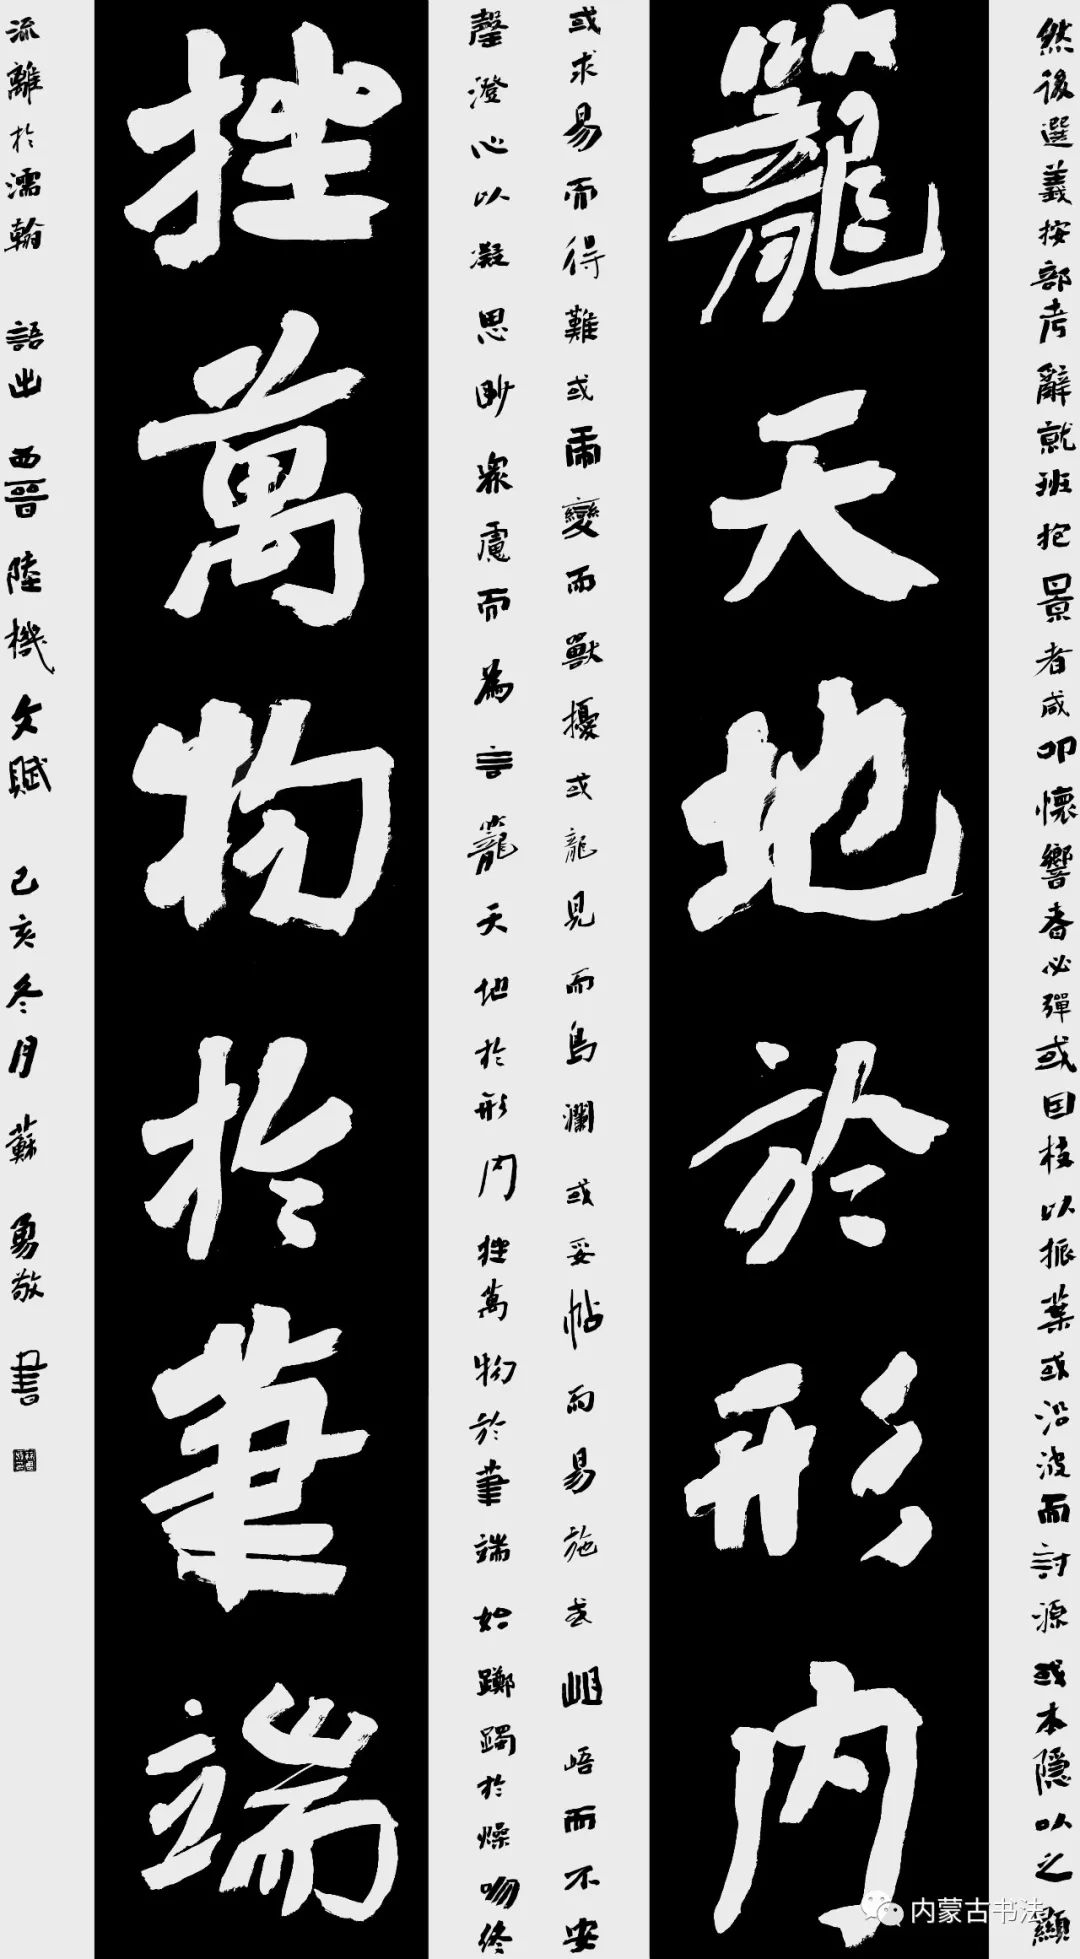 然後選義按部考辭就班抱景者咸叩懷響者必彈或因枝以振葉或沿波而討源或本隱以之顯
籠天地於形内
或求易而得難或虎變而獸擾或龍見而鳥瀾或妥帖而易施或岨峿而不安
罄澄心以凝思眇衆慮而為言籠天地於形内挫萬物於筆端始躑躅於燥吻終
挫萬物於筆端
流離於濡翰 語出 西晉 陸機 文賦 己亥冬月 蘇勇敬書
内蒙古书法